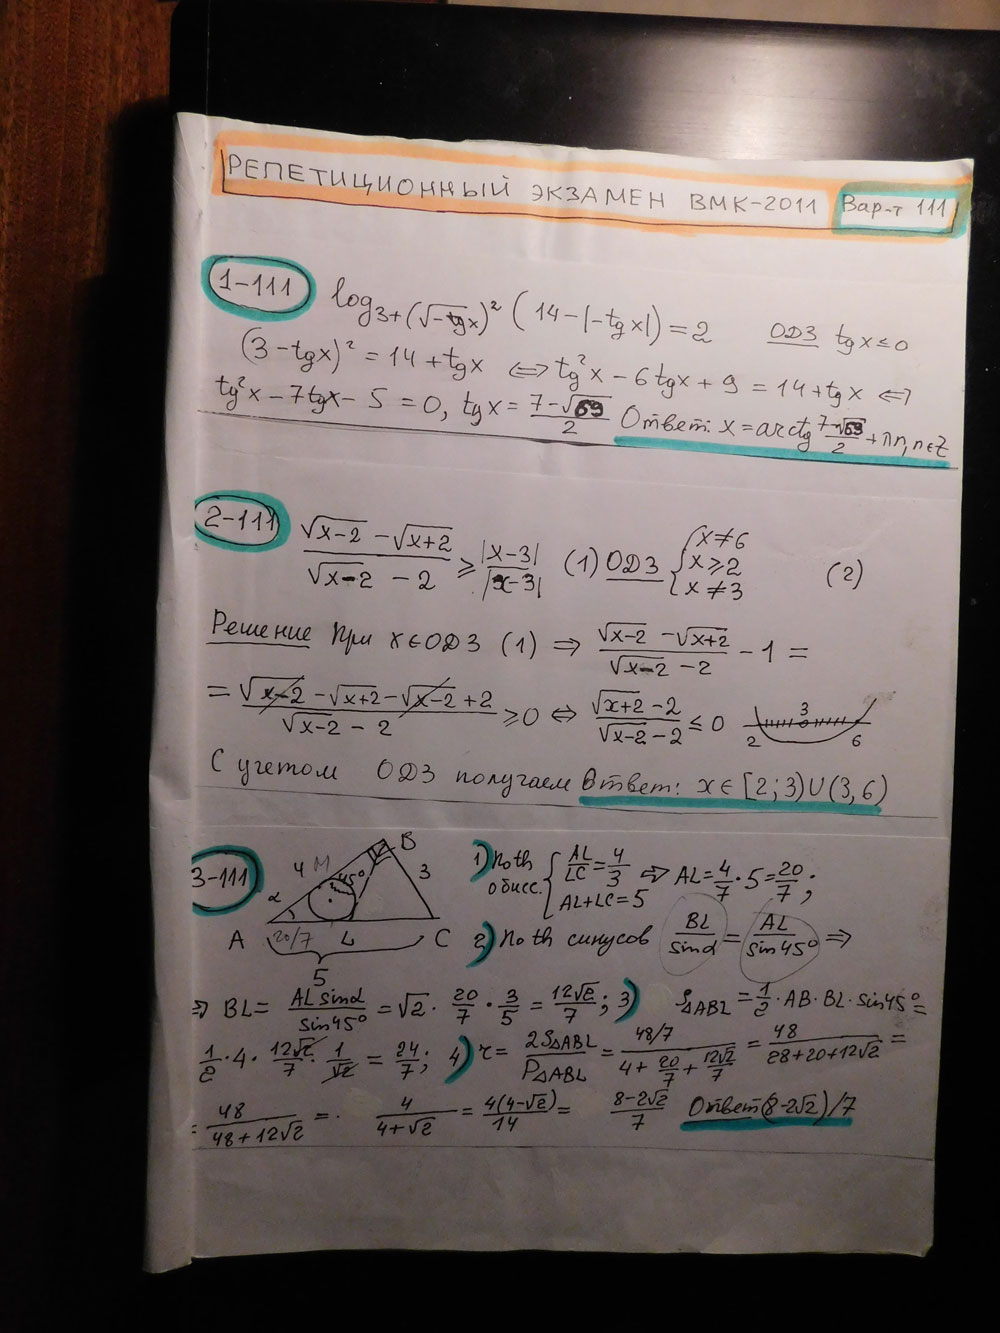 РЕПЕТИЦИОННЫЙ ЭКЗАМЕН ВМК-2011 Вар-т 111
1-111 log_{3+(√-tgx)²} (14-|-tgx|) = 2 ОДЗ tgx≤0
(3-tgx)² = 14+tgx ⇔ tg²x-6tgx+9 = 14+tgx ⇔
tg²x-7tgx-5 = 0, tgx = (7-√69)/2 Ответ: x = arctg (7-√69)/2 + πn, n∈Z
2-111 (√x-2 - √x+2)/(√x-2 - 2) ≥ |x-3|/|x-3| (1) ОДЗ { x≠6 x≥2 x≠3 (2)
Решение При x∈ОДЗ (1) ⇒ (√x-2 - √x+2)/(√x-2 - 2) - 1 =
= (√x-2 - √x+2 - √x-2 + 2)/(√x-2 - 2) ≥ 0 ⇔ (√x+2 - 2)/(√x-2 - 2) ≤ 0 2 3 6
С учетом ОДЗ получаем Ответ: x∈[2;3)∪(3,6)
3-111 A B C L M α 45° 4 3 20/7 5
1) По th обисс. { AL/LC = 4/3 AL+LC=5 ⇒ AL = 4/7 · 5 = 20/7;
2) По th синусов BL/sinα = AL/sin45° ⇒
⇒ BL = ALsinα/sin45° = √2 · 20/7 · 3/5 = 12√2/7; 3) S△ABL = 1/2 · AB · BL · sin45° =
1/2 · 4 · 12√2/7 · 1/√2 = 24/7; 4) r = 2S△ABL/P△ABL = (48/7)/(4 + 20/7 + 12√2/7) = 48/(28+20+12√2) =
= 48/(48+12√2) = 4/(4+√2) = 4(4-√2)/14 = (8-2√2)/7 Ответ (8-2√2)/7